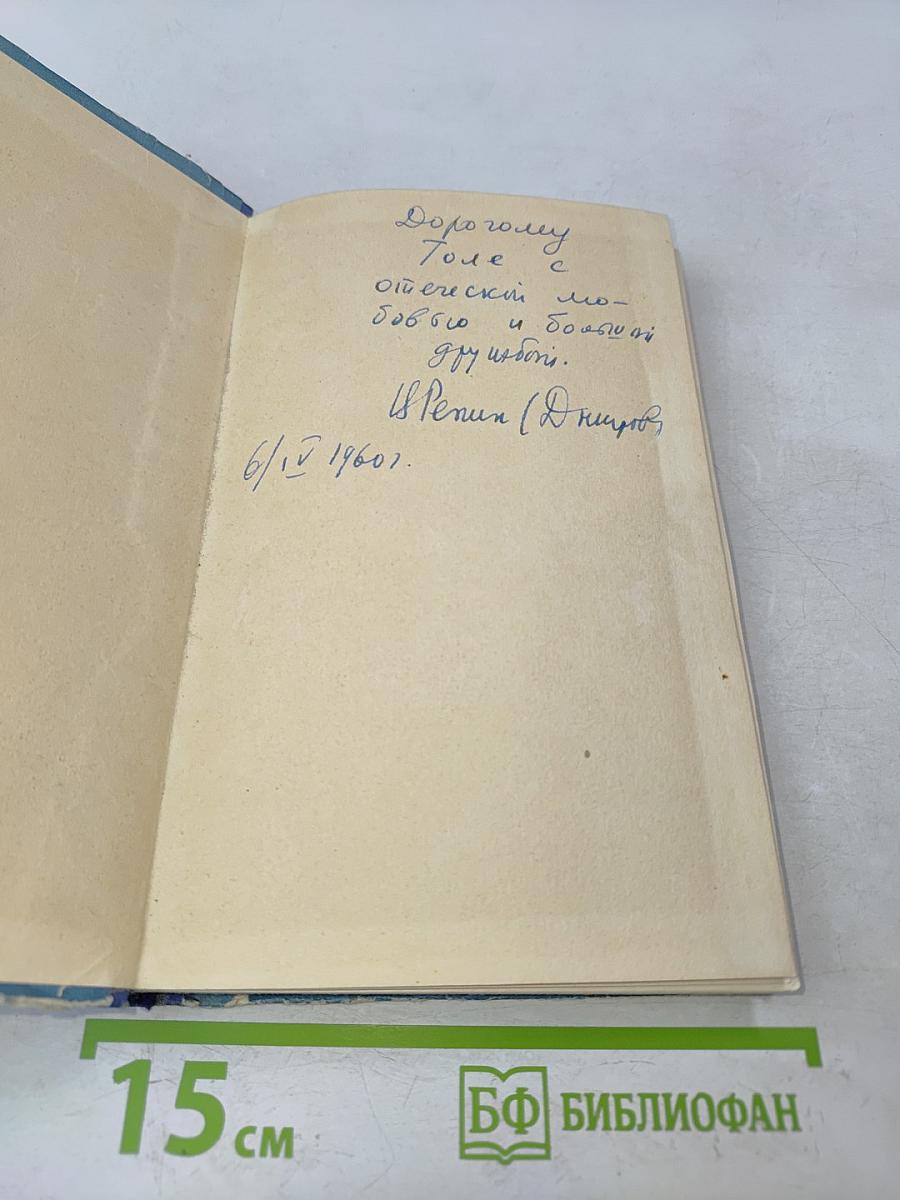 Дорогому
Толе с
отеческой лю-
бовью и большой
дружбой.
Репин (Дмитров)
6/IV 1960 г.
15 см
БФ БИБЛИОФАН